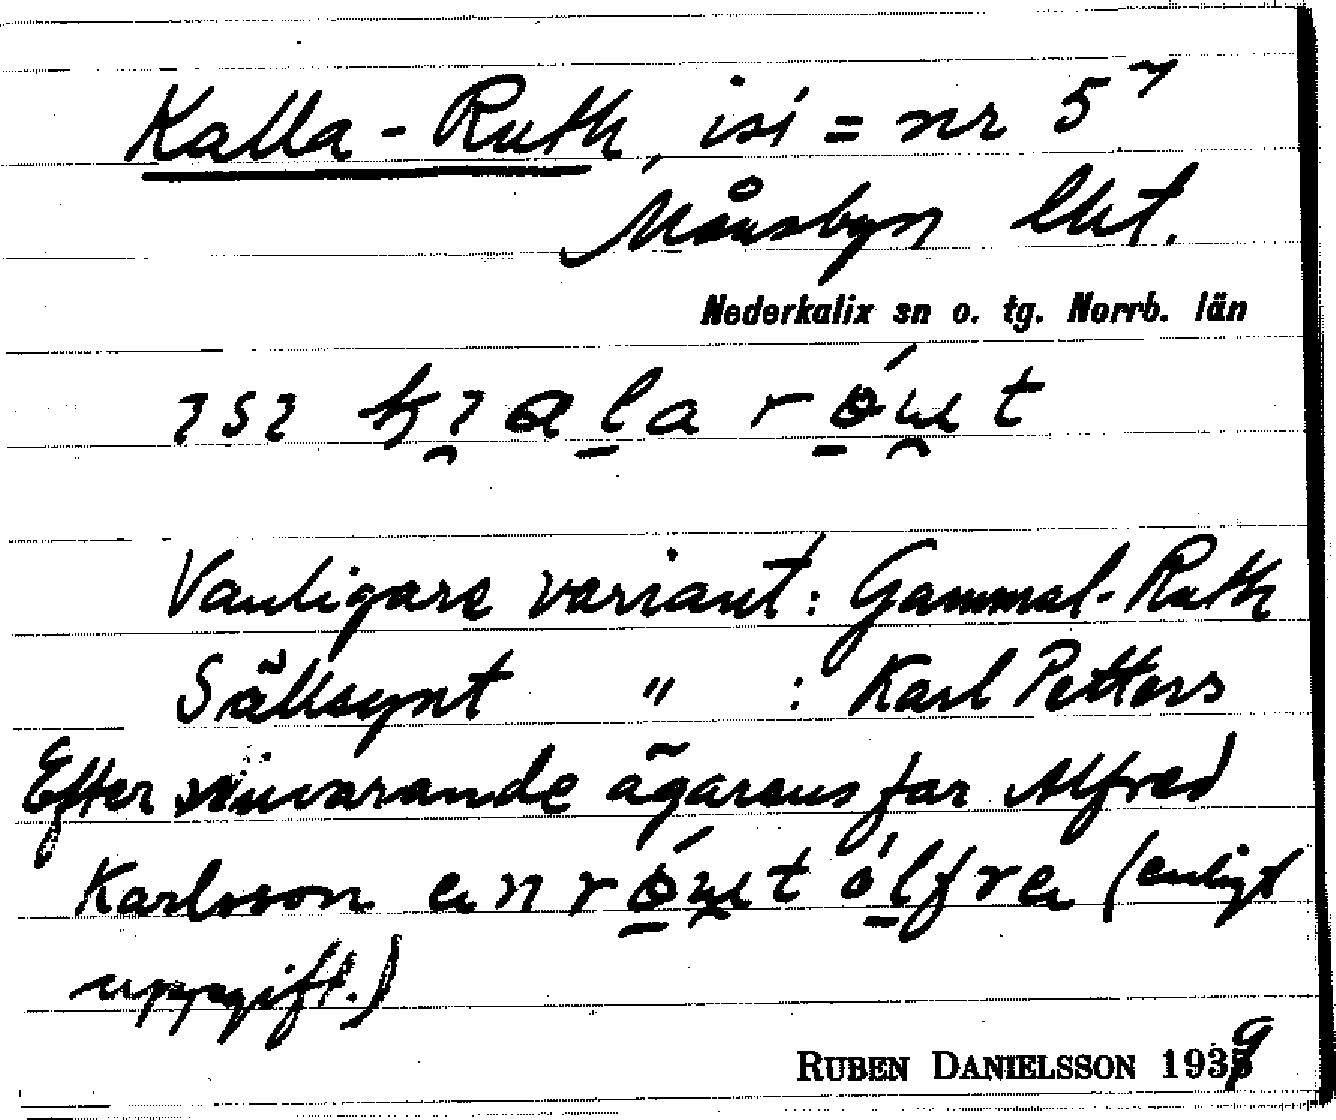 Kalla-Ruth, isi = nr 5⁷
Månsbyn
Nederkalix sn o. tg. Norrb. län
Vanligare variant: Gammal-Ruth
Sällsynt " : Karl Petters
Efter nuvarande ägarens far Alfred
Karlsson (enligt
uppgift.)
RUBEN DANIELSSON 1939